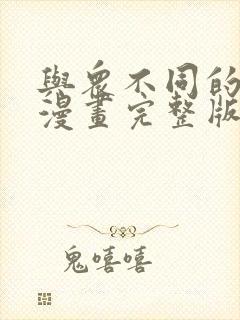 與眾不同的
漫畫完整版
鬼嘻嘻